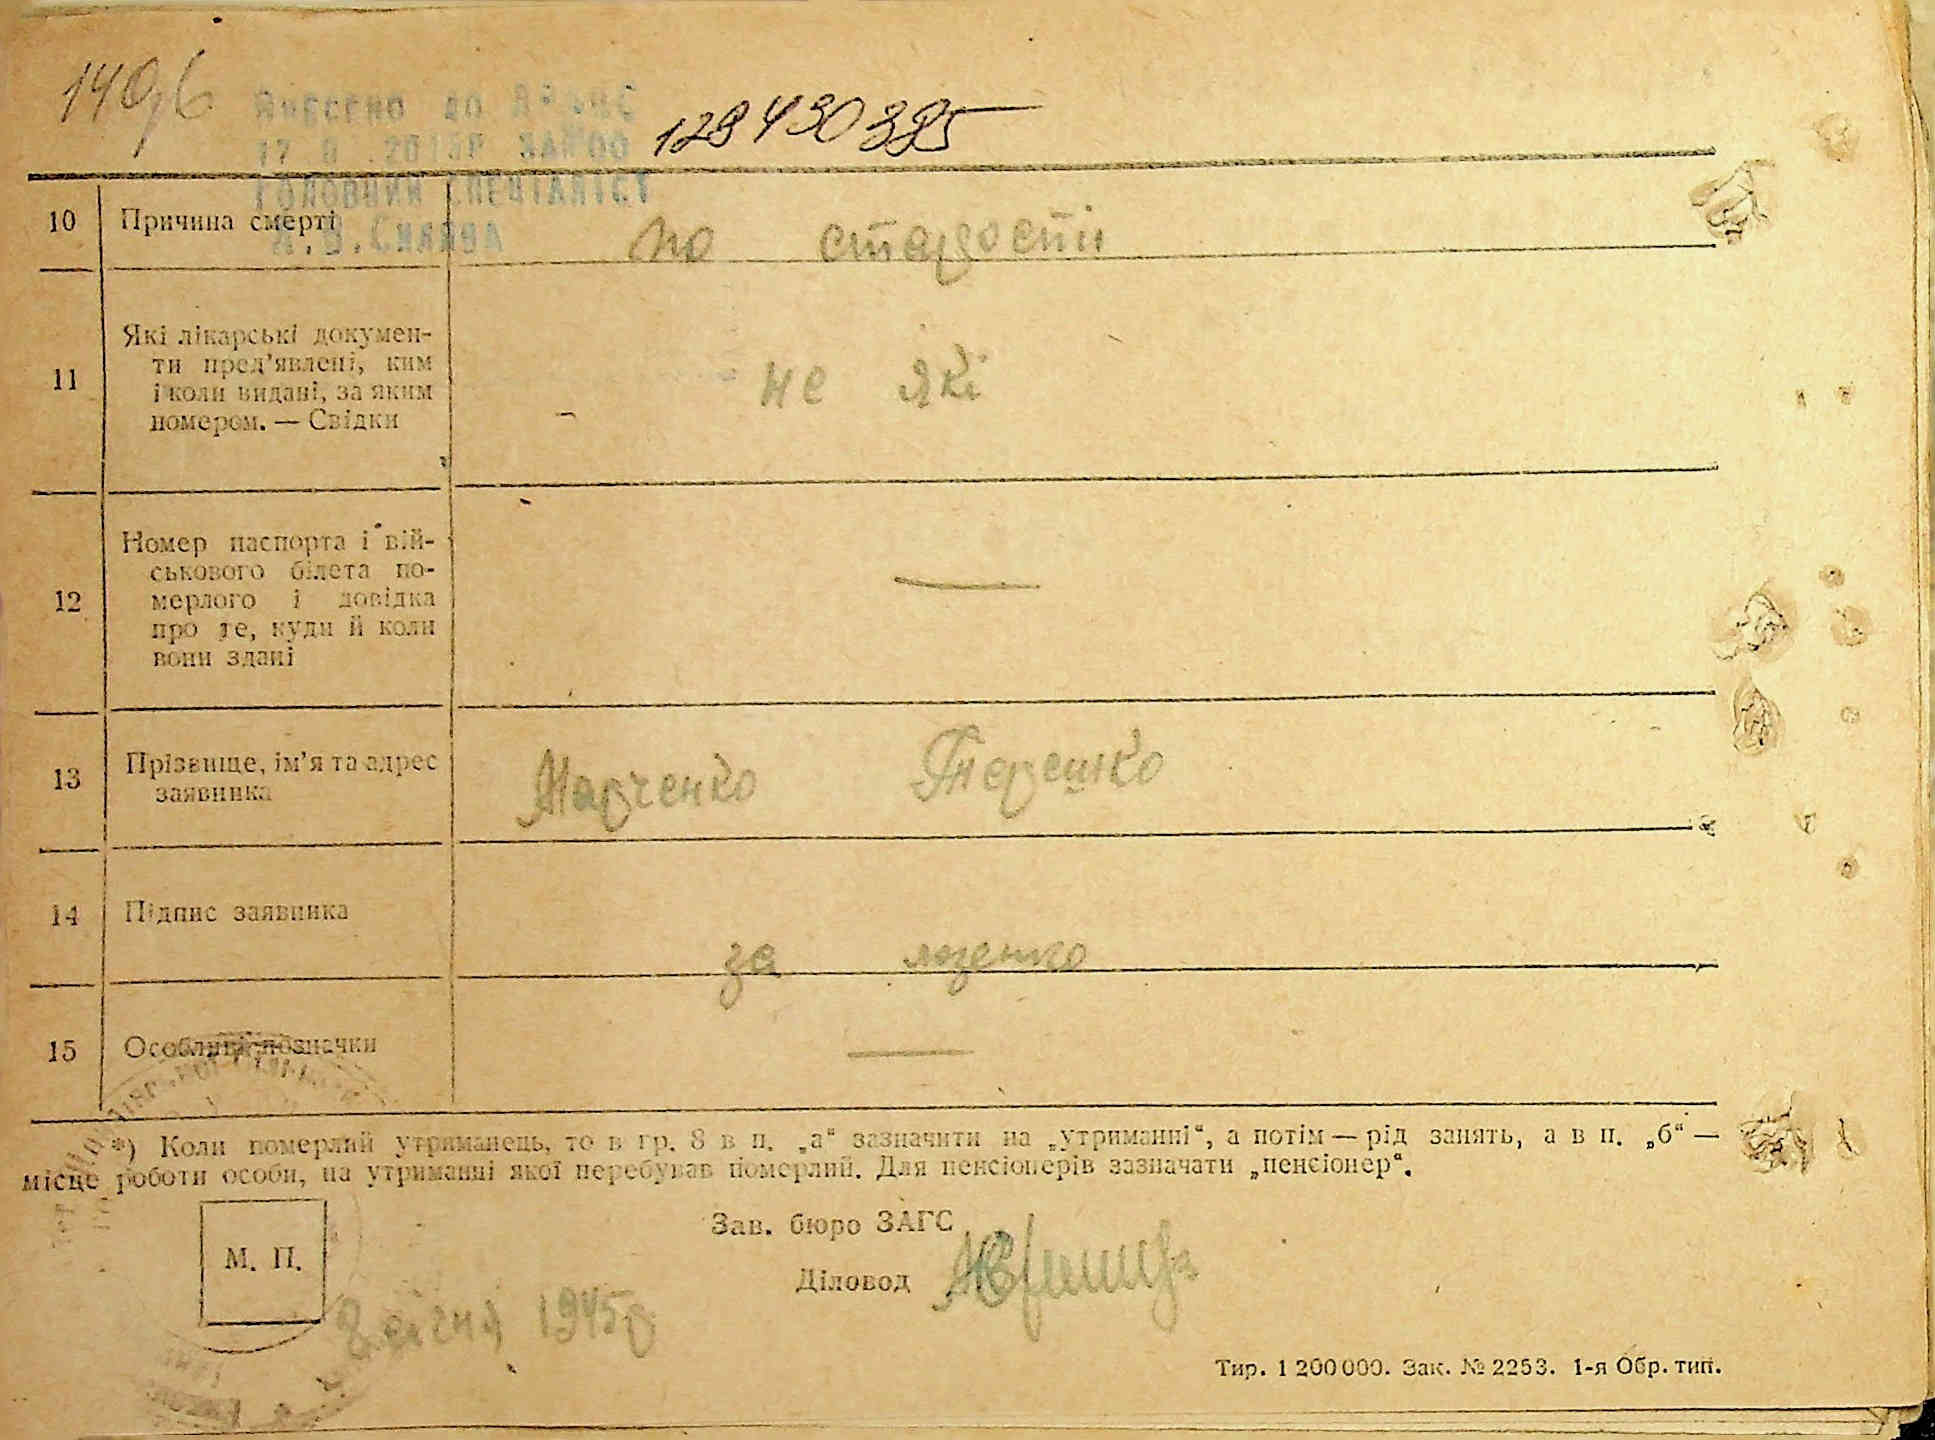 128430385
ГОЛОВНИЙ СПЕЦІАЛІСТ
10 Причина смерті по старости
11 Які лікарські докумен-
ти пред'явлені, ким
і коли видані, за яким
номером. — Свідки
не які
12 Номер паспорта і вій-
ськового білета по-
мерлого і довідка
про те, куди й коли
вони здані
—
13 Прізвище, ім'я та адрес
заявника
Марченко Терешко
14 Підпис заявника
за
15 Особливі позначки —
*) Коли померлий утриманець, то в гр. 8 в п. „а“ зазначити на „утриманні“, а потім — рід занять, а в п. „б“ —
місце роботи особи, на утриманні якої перебував померлий. Для пенсіонерів зазначати „пенсіонер“.
Зав. бюро ЗАГС
М. П.
Діловод
січня 1945р
Тир. 1 200 000. Зак. № 2253. 1-я Обр. тип.